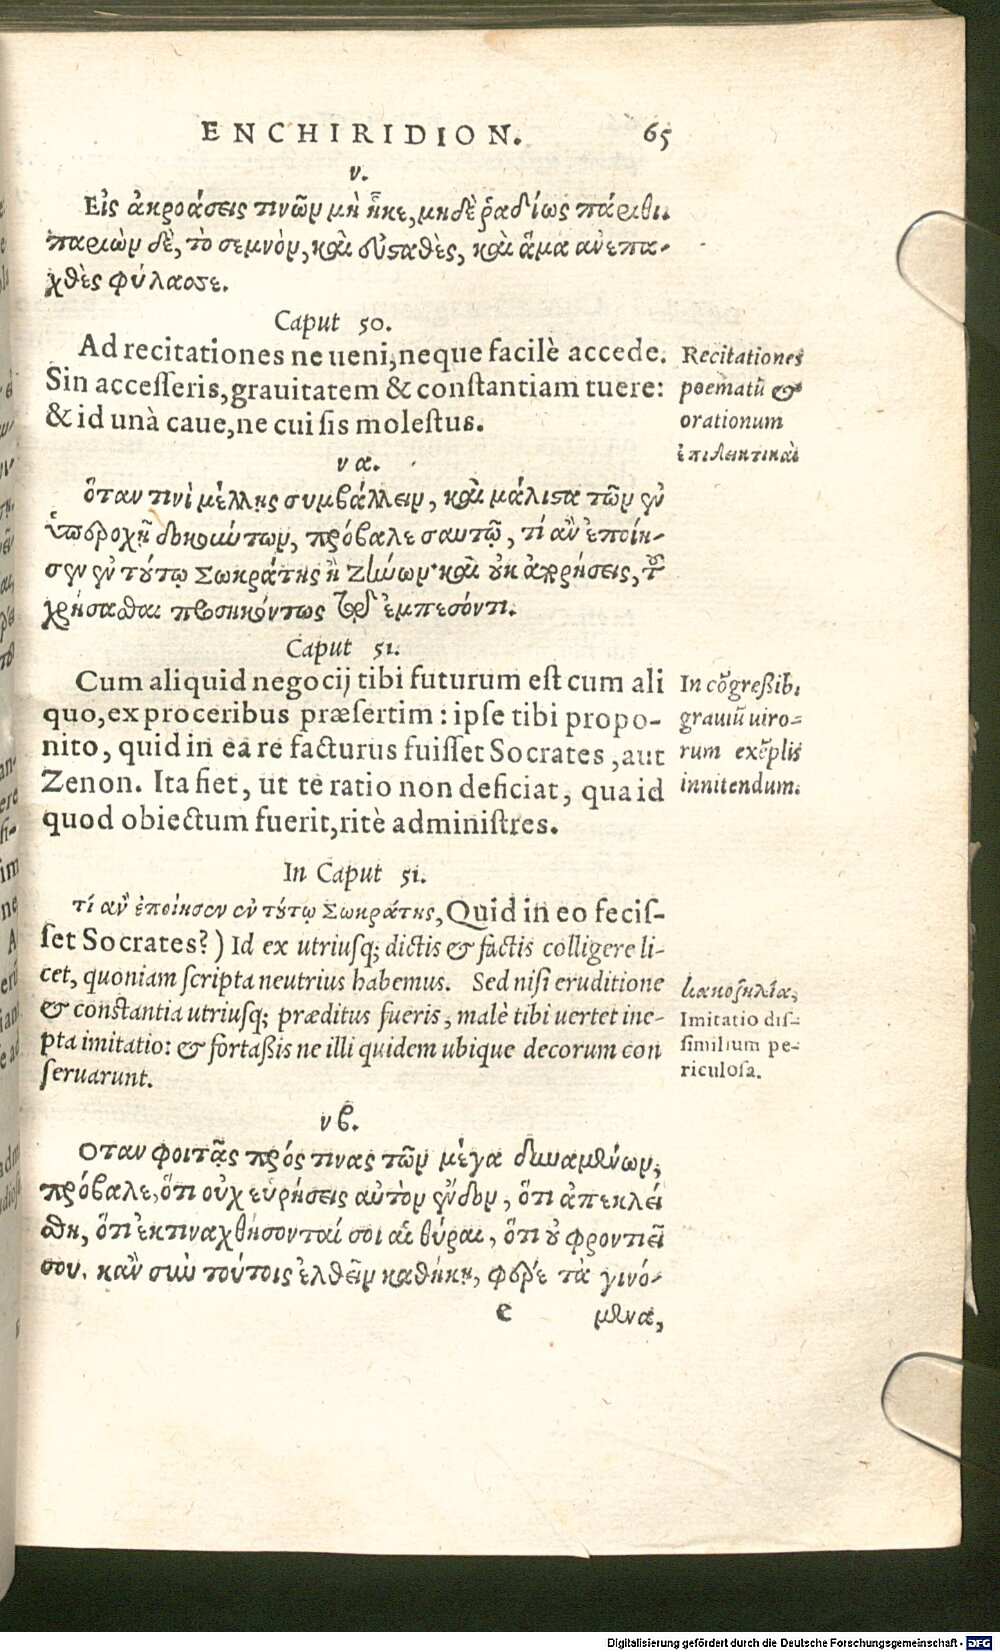 ENCHIRIDION. 65
ν.
Εἰς ἀκροάσεις τινῶν μὴ ἧκε, μηδὲ ῥᾳδίως πάριθι.
παριὼν δὲ, τὸ σεμνὸν, καὶ εὐσταθὲς, καὶ ἅμα ἀνεπα-
χθὲς φύλασσε.
Caput 50.
Ad recitationes ne ueni, neque facilè accede.
Sin accesseris, grauitatem & constantiam tuere:
& id unà caue, ne cui sis molestus.
Recitationes
poematũ &
orationum
ἐπιδεικτικαὶ
να.
ὅταν τινὶ μέλλῃς συμβάλλειν, καὶ μάλιστα τῶν ἐν
ὑπεροχῇ δοκούντων, πρόβαλε σαυτῷ, τί ἂν ἐποίη-
σεν ἐν τούτῳ Σωκράτης ἢ Ζήνων· καὶ οὐκ ἀπορήσεις, τοῦ
χρήσασθαι προσηκόντως τῷ ἐμπεσόντι.
Caput 51.
Cum aliquid negocij tibi futurum est cum ali
quo, ex proceribus præsertim: ipse tibi propo-
nito, quid in ea re facturus fuisset Socrates, aut
Zenon. Ita fiet, ut te ratio non deficiat, qua id
quod obiectum fuerit, ritè administres.
In cõgreßib.
grauiũ uiro-
rum exẽplis
innitendum.
In Caput 51.
τί ἂν ἐποίησεν ἐν τούτῳ Σωκράτης, Quid in eo fecis-
set Socrates?) Id ex utriusq; dictis & factis colligere li-
cet, quoniam scripta neutrius habemus. Sed nisi eruditione
& constantia utriusq; præditus fueris, malè tibi uertet ine-
pta imitatio: & fortaßis ne illi quidem ubique decorum con
seruarunt.
κακοζηλία,
Imitatio dis-
similium pe-
riculosa.
νβ.
Οταν φοιτᾷς πρός τινας τῶν μέγα δυναμένων,
πρόβαλε, ὅτι οὐχ εὑρήσεις αὐτὸν ἔνδον, ὅτι ἀπεκλεί
σθη, ὅτι ἐκτιναχθήσονταί σοι αἱ θύραι, ὅτι οὐ φροντιεῖ
σου. κἂν σὺν τούτοις ἐλθεῖν καθήκῃ, φέρε τὰ γινό-
e μενα,
Digitalisierung gefördert durch die Deutsche Forschungsgemeinschaft - DFG